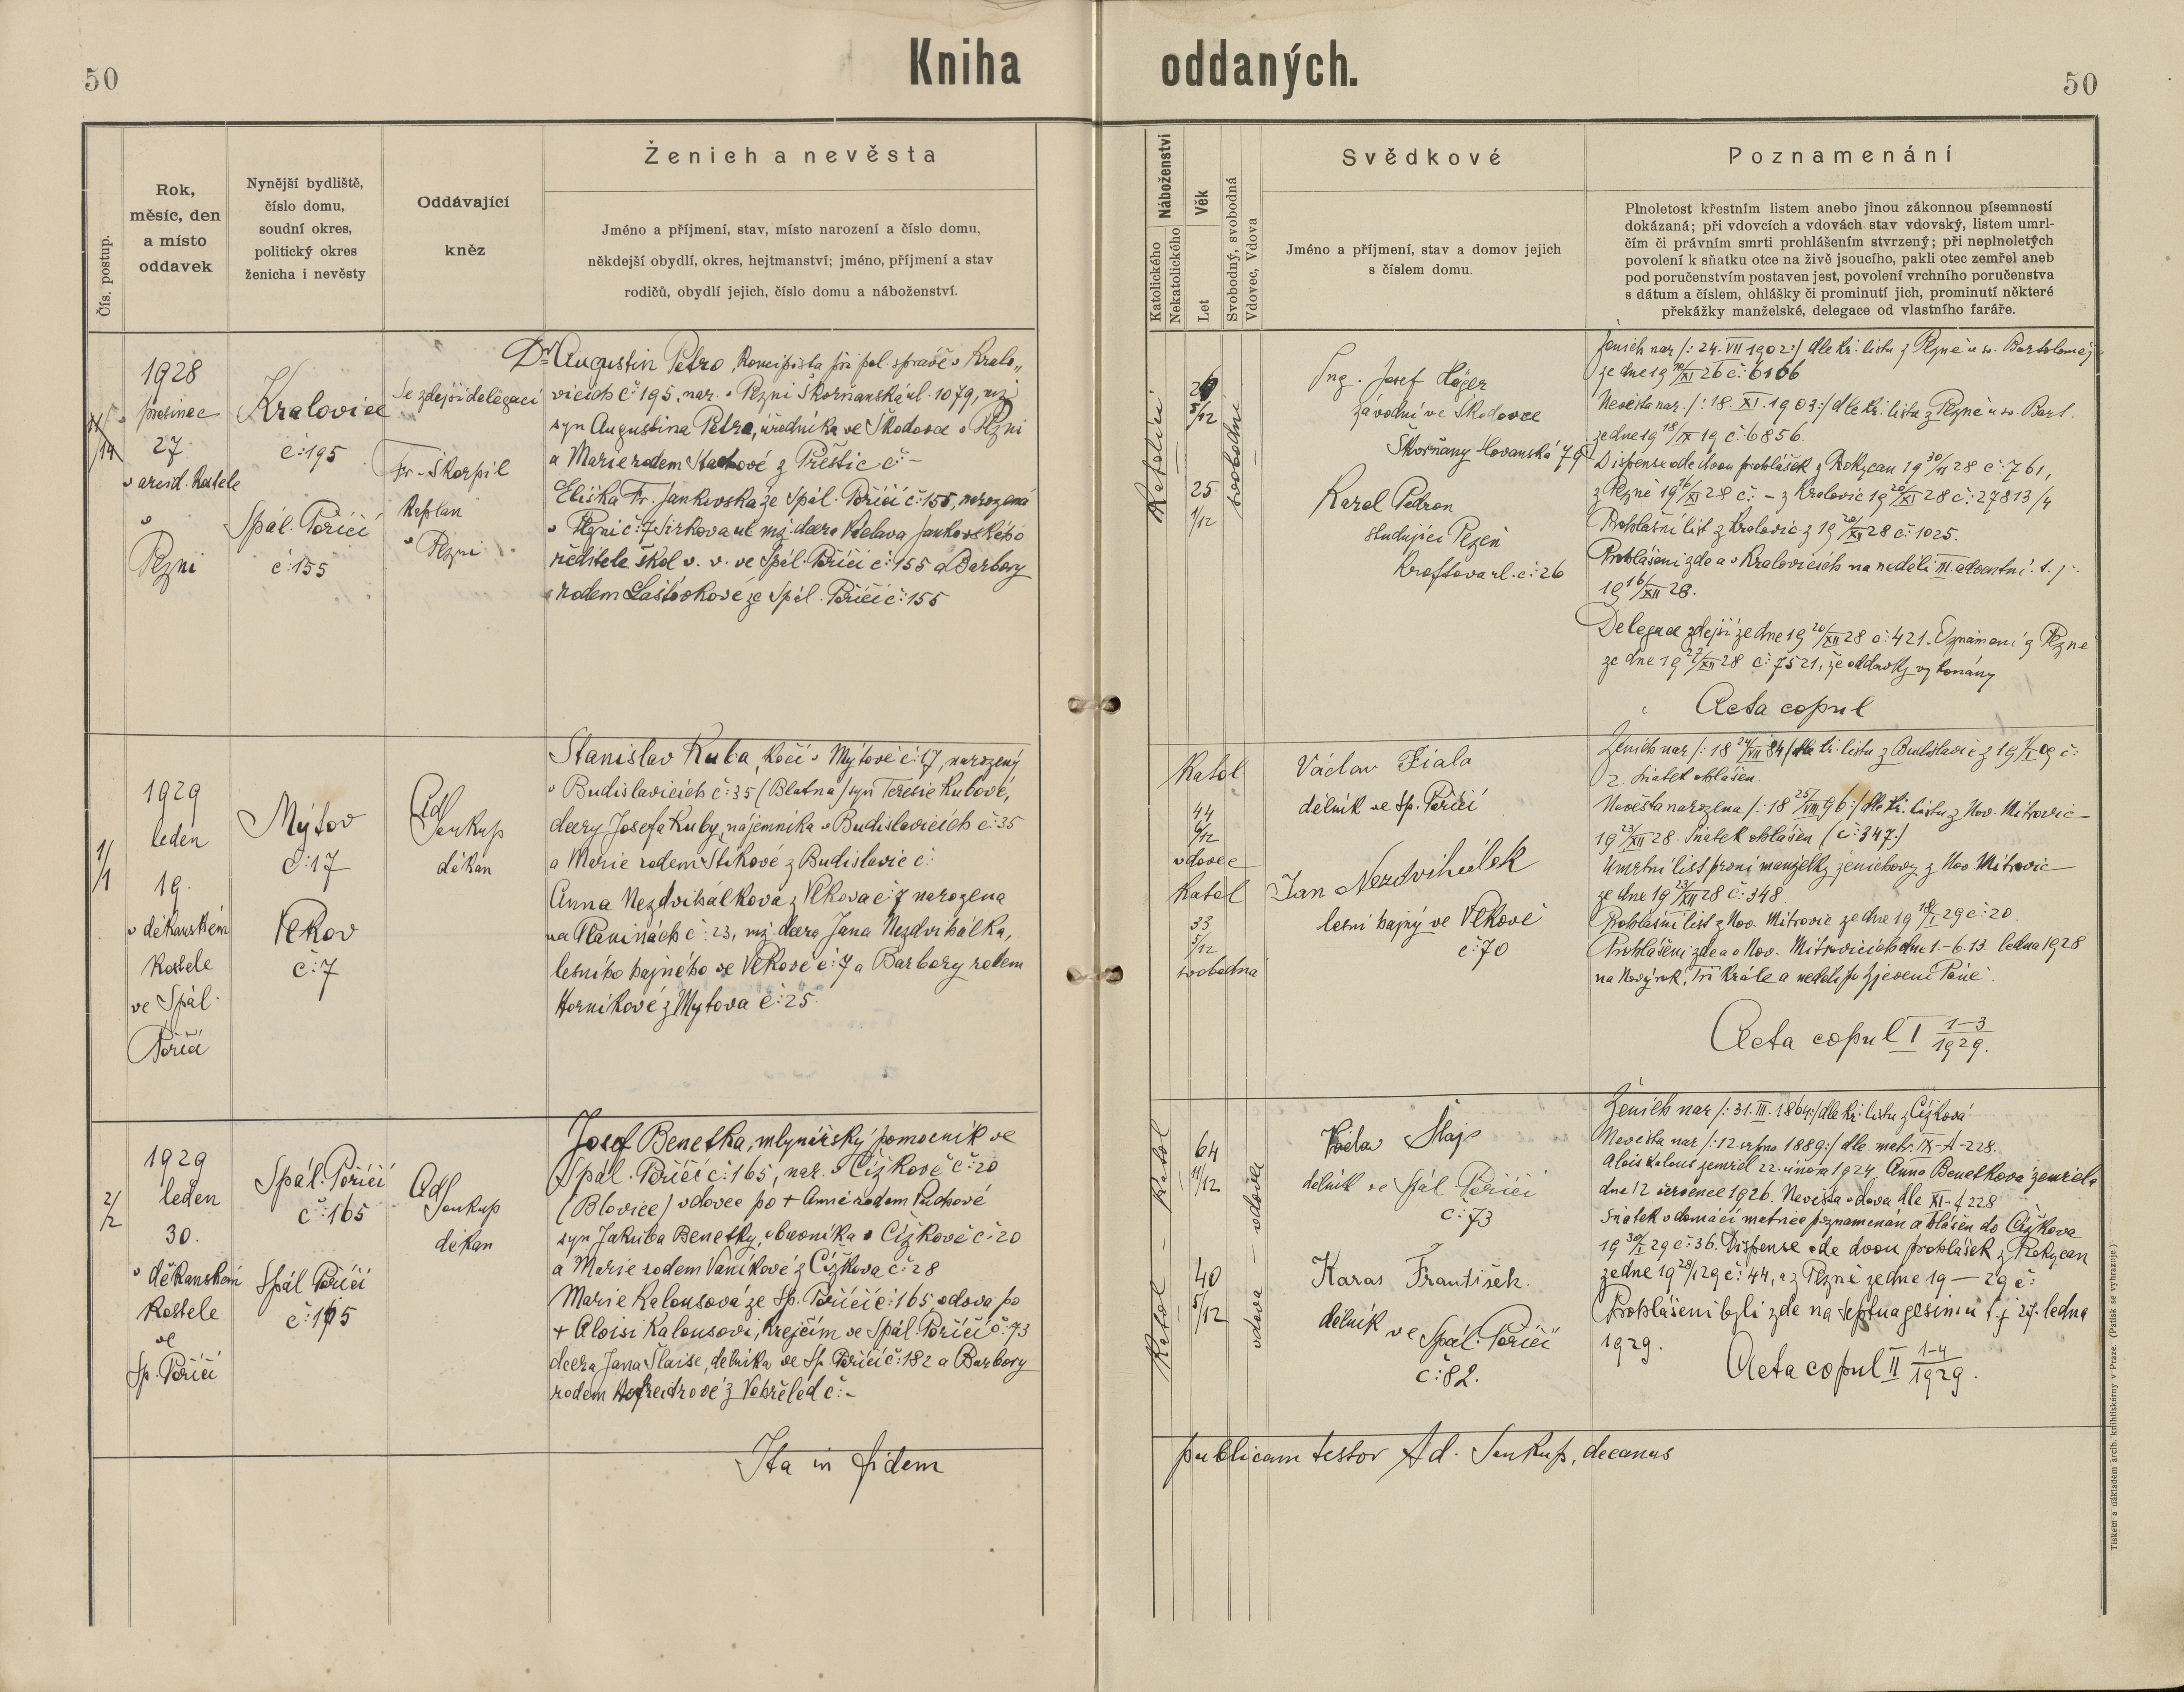 50
Kniha oddaných.
50
Čís. postup.
Rok,
měsíc, den
a místo
oddavek
Nynější bydliště,
číslo domu,
soudní okres,
politický okres
ženicha i nevěsty
Oddávající
kněz
Ženich a nevěsta
Jméno a příjmení, stav, místo narození a číslo domu,
někdejší obydlí, okres, hejtmanství; jméno, příjmení a stav
rodičů, obydlí jejich, číslo domu a náboženství.
Náboženství
Katolického
Nekatolického
Věk
Let
Svobodný, svobodná
Vdovec, Vdova
Svědkové
Jméno a příjmení, stav a domov jejich
s číslem domu.
Poznamenání
Plnoletost křestním listem anebo jinou zákonnou písemností
dokázaná; při vdovcích a vdovách stav vdovský, listem umrl-
čím či právním smrti prohlášením stvrzený; při neplnoletých
povolení k sňatku otce na živě jsoucího, pakli otec zemřel aneb
pod poručenstvím postaven jest, povolení vrchního poručenstva
s dátum a číslem, ohlášky či prominutí jich, prominutí některé
překážky manželské, delegace od vlastního faráře.
1928
prosinec
27
v arcid. kostele
v
Plzni
Kralovice
č: 195
Spál. Poříčí
č: 155
Se zdejší delegací
Fr. Škorpil
kaplan
v Plzni
Dr Augustin Petro, koncipista při pol. správě v Kralo„
vicích č: 195, nar. v Plzni Škorňanská ul. 1079, mž
syn Augustina Petra, úředníka ve Škodovce v Plzni
a Marie rodem Stachové z Přeštic č: –
Eliška Fr. Jankovská ze Spál. Poříčí č: 155, narozená
v Plzni č: 7 Jirkova ul mž. dcera Václava Jankovského
ředitele škol v. v. ve Spál. Poříčí č: 155 a Barbory
rodem Laštovkové ze Spál. Poříčí č: 155
Katoličtí
5/12
25
1/12
svobodní
Ing. Josef Häger
závodní ve Škodovce
Škvrňany Slovanská 79
Karel Petron
studující Plzeň
Kroftova ul. č: 26
Ženich nar /: 24. VII 1902:/ dle kř. listu z Plzně u sv. Bartoloměj
ze dne 19 /XI 26 č: 6166
Nevěsta nar. /: 18. XI. 1903:/ dle kř. listu z Plzně u sv. Bart.
ze dne 19 18/IX 19 č: 6856.
Dispense ode dvou prohlášek z Rokycan 19 30/XI 28 č: 761,
z Plzně 19 16/XI 28 č: – z Kralovic 19 20/XI 28 č: 27813/4
Prohlašní list z Kralovic z 19 20/XII 28 č: 1025.
Prohlášeni zde a v Kralovicích na neděli III. adventní. t. j.
19 16/XII 28.
Delegace zdejší ze dne 19 20/XII 28 č: 421. Oznámení z Plzně
ze dne 19 27/XII 28 č: 7521, že oddavky vykonány
Acta copul
1/1
1929
leden
19.
v děkanském
kostele
ve Spál.
Poříčí
Mýtov
č: 17
Vlkov
č: 7
Ad
Soukup
děkan
Stanislav Kuba, kočí v Mýtově č: 17, narozený
v Budislavicích č: 35 (Blatná) syn Teresie Kubové,
dcery Josefa Kuby, nájemníka v Budislavicích č: 35
a Marie rodem Síkové z Budislavic č:
Anna Nezdvihálková z Vlkova č: 7 narozena
na Planinách č: 23, mž. dcera Jana Nezdvihálka,
lesního hajného ve Vlkově č: 7 a Barbory rodem
Horníkové z Mýtova č: 25.
Katol
44
6/12
vdovec
Katol
33
5/12
svobodná
Václav Fiala
dělník ve Sp. Poříčí
Jan Nezdvihálek
lesní hajný ve Vlkově
č: 70
Ženich nar /: 18 24/VII 84/ dle kř. listu z Budislavic z 19 /I 09 č:
2. Sňatek ohlášen.
Nevěsta narozena /: 18 25/VIII 96:/ dle kř. listu z Nov. Mitrovic
19 23/XII 28. Sňatek ohlášen (č: 347.)
Úmrtní list první manželky ženichovy z Nov Mitrovic
ze dne 19 23/XII 28 č: 348.
Prohlašní list z Nov. Mitrovic ze dne 19 18/I 29 č: 20.
Prohlášeni zde a v Nov. Mitrovicích dne 1. – 6. 13. ledna 1928
na Nový rok, Tři Krále a neděli po Zjevení Páně.
Acta copul I 1–3/1929.
2/2
1929
leden
30.
v děkanském
kostele
ve
Sp. Poříčí
Spál. Poříčí
č: 165
Spál Poříčí
č: 165
Ad
Soukup
děkan
Josef Benetka, mlynářský pomocník ve
Spál. Poříčí č: 165, nar. v Čížkově č: 20
(Blovice) vdovec po + Anně rodem Puchové
syn Jakuba Benetky, obecníka v Čížkově č: 20
a Marie rodem Vaníkové z Čížkova č: 28
Marie Kalousová ze Sp. Poříčí č: 165, vdova po
+ Aloisi Kalousovi, krejčím ve Spál. Poříčí č: 73
dcera Jana Šlaise, dělníka ve Sp. Poříčí č: 182 a Barbory
rodem z č: –
Katol – Katol
64
11/12
40
5/12
vdova – vdovec
Václav Šlajs
dělník ve Spál Poříčí
č: 73
Karas František.
dělník
ve Spál. Poříčí
č: 82.
Ženich nar /: 31. III. 1864:/ dle kř. listu z Čížkova
Nevěsta nar /: 12. srpna 1889:/ dle matr. IX–A–228.
Alois Kalous zemřel 22. února 1924 Anna Benetková zemřela
dne 12 července 1926. Nevěsta vdova dle XI–A 228
Sňatek v domácí matrice poznamenán a ohlášen do Čížkova
19 30/I 29 č: 36. Dispense ode dvou prohlášek z Rokycan
ze dne 19 28/I 29 č: 44, a z Plzně ze dne 19 – 29 č:
Prohlášeni byli zde na Septuagesimu t. j 27. ledna
1929.
Acta copul II 1–4/1929.
Ita in fidem publicam testor Ad. Soukup, decanus
Tiskem a nákladem arcib. knihtiskárny v Praze. (Patisk se vyhrazuje.)